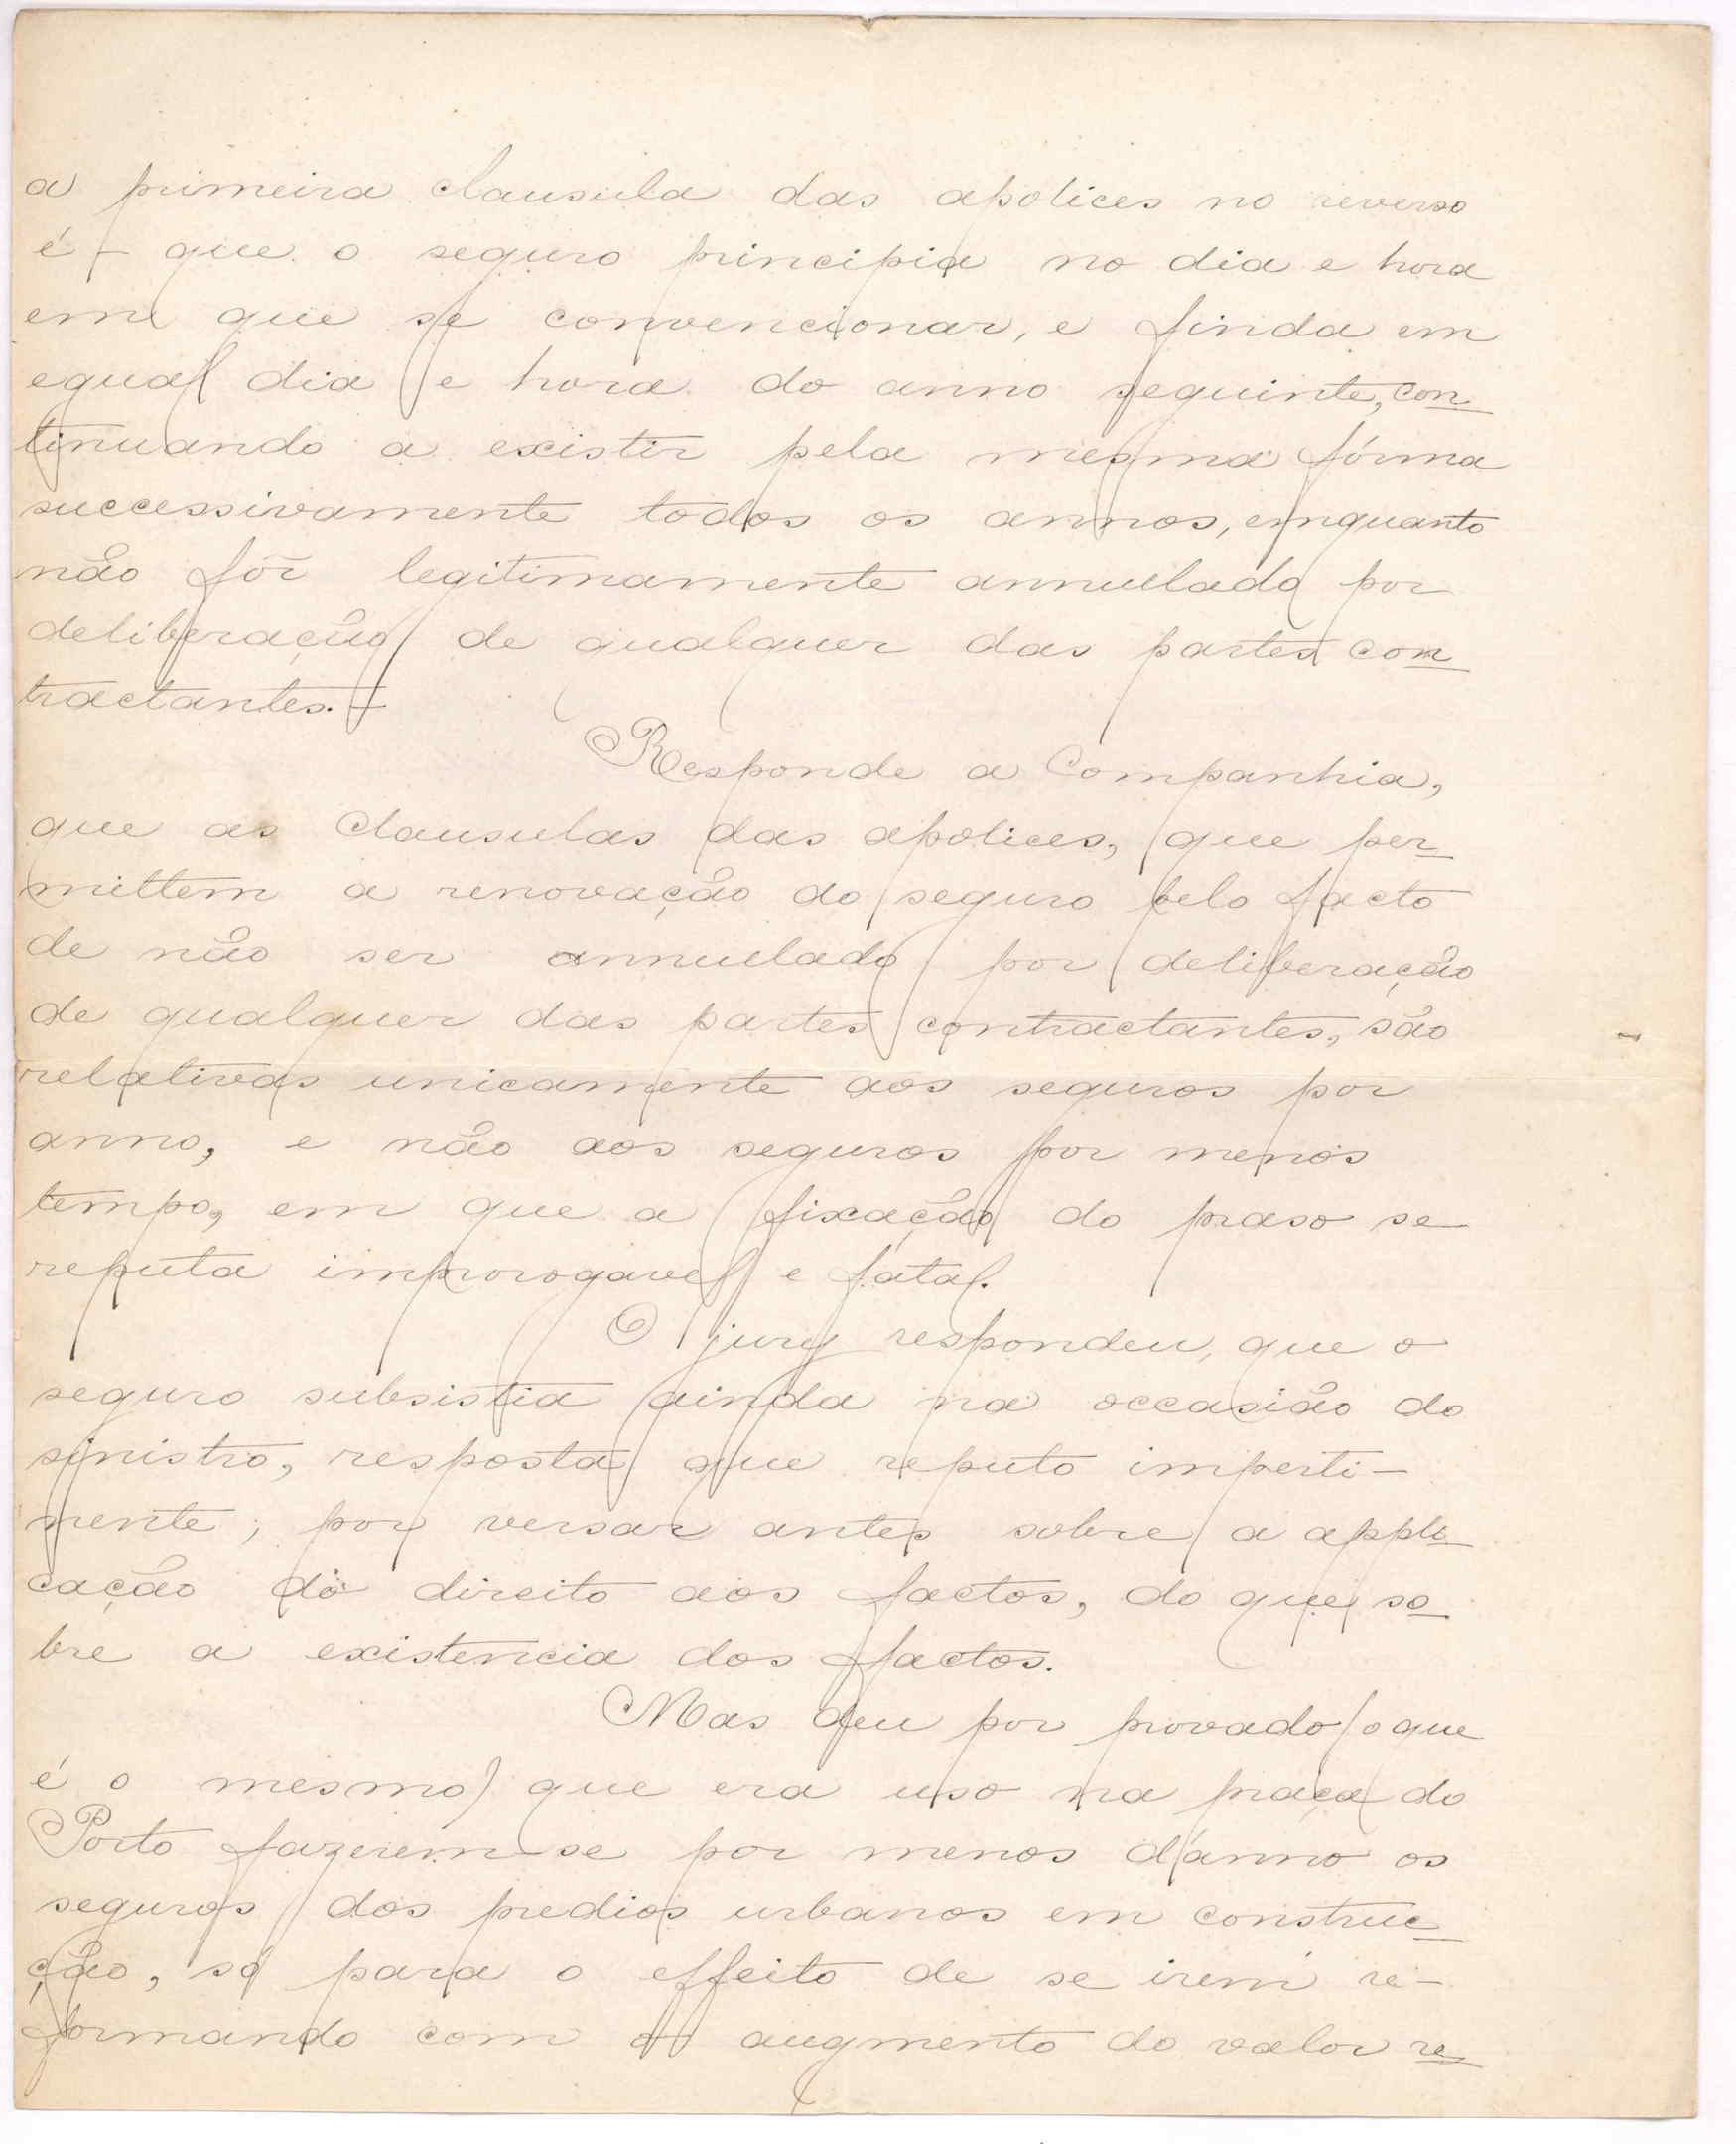 a primeira clausula das apolices no reverso
é – que o seguro principia no dia e hora
em que se convencionar, e finda em
egual dia e hora do anno seguinte, con-
tinuando a existir pela mesma fórma
successivamente todos os annos, emquanto
não fôr legitimamente annullado por
deliberação de qualquer das partes con-
tractantes. –
Responde a Companhia,
que as clausulas das apolices, que per-
mittem a renovação do seguro pelo facto
de não ser annullado por deliberação
de qualquer das partes contractantes, são
relativas unicamente aos seguros por
anno, e não aos seguros por menos
tempo, em que a fixação do praso se
reputa improrogavel e fatal.
O jury respondeu, que o
seguro subsistia ainda na occasião do
sinistro, resposta que reputo imperti-
nente; por versar antes sobre a appli-
cação do direito aos factos, do que so-
bre a existencia dos factos.
Mas deu por provado (o que
é o mesmo) que era uso na praça do
Porto fazerem-se por menos d'anno os
seguros dos predios urbanos em construc-
ção, só para o effeito de se irem re-
formando com o augmento do valor re-